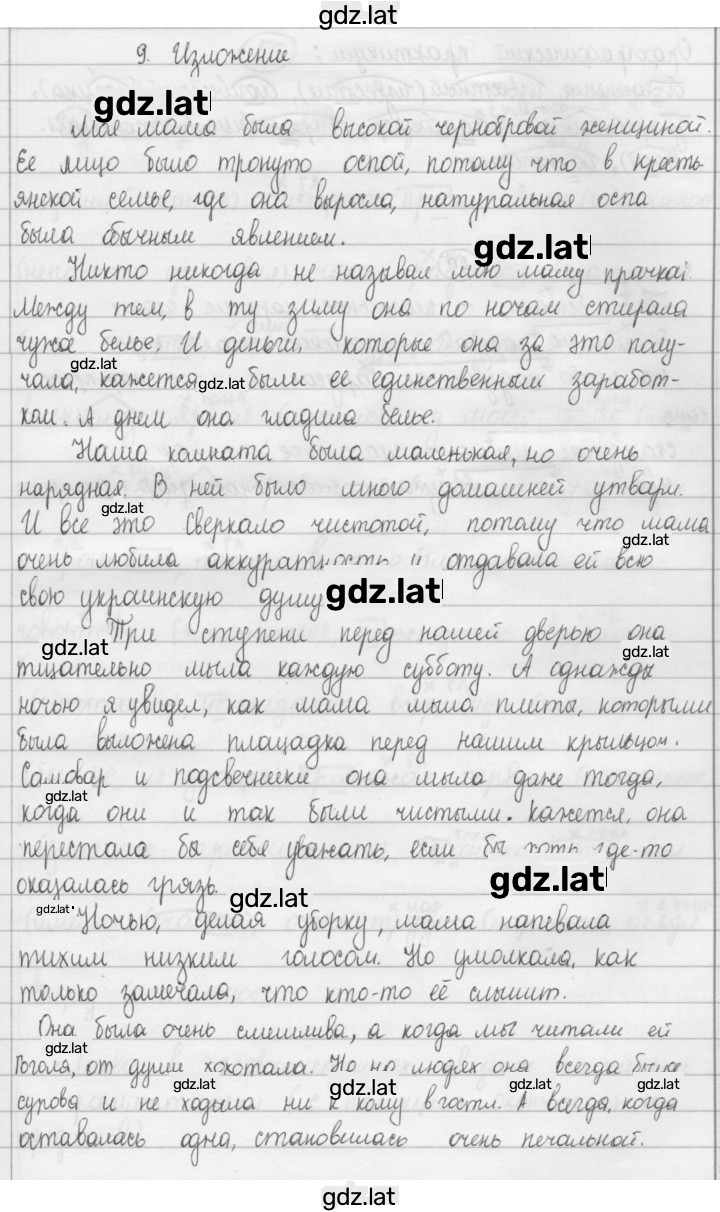 gdz.lat
9. Изложение
gdz.lat
Моя мама была высокой чернобровой женщиной.
Ее лицо было тронуто оспой, потому что в кресть-
янской семье, где она выросла, натуральная оспа
была обычным явлением.
gdz.lat
Никто никогда не называл мою маму прачкой.
Между тем, в ту зиму она по ночам стирала
чужое белье. И деньги, которые она за это полу-
gdz.lat
чала, кажется были ее единственным заработ-
gdz.lat
ком. А днем она гладила белье.
Наша комната была маленькая, но очень
нарядная. В ней было много домашней утвари.
gdz.lat
И все это сверкало чистотой, потому что мама
gdz.lat
очень любила аккуратность и отдавала ей всю
свою украинскую душу
gdz.lat
Три ступени перед нашей дверью она
gdz.lat
gdz.lat
тщательно мыла каждую субботу. А однажды
ночью я увидел, как мама мыла плиты, которыми
была выложена площадка перед нашим крыльцом.
Самовар и подсвечники она мыла даже тогда,
gdz.lat
когда они и так были чистыми. Кажется, она
перестала бы себя уважать, если бы хоть где-то
оказалась грязь.
gdz.lat
gdz.lat
gdz.lat
Ночью, делая уборку, мама напевала
тихим низким голосом. Но умолкала, как
только замечала, что кто-то её слышит.
Она была очень смешлива, а когда мы читали ей
gdz.lat
Гоголя, от души хохотала. Но на людях она всегда была
gdz.lat
gdz.lat
gdz.lat
gdz.lat
сурова и не ходила ни к кому в гости. А всегда, когда
оставалась одна, становилась очень печальной.
gdz.lat